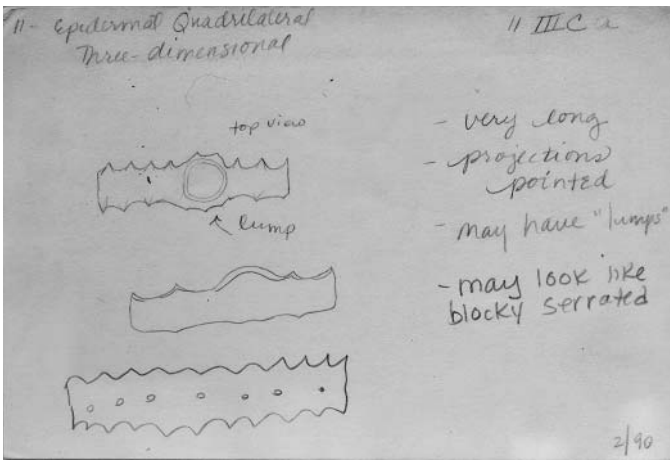 11- Epidermal Quadrilateral
Three-dimensional
11 IIIC a
top view
lump
- very long
- projections
pointed
- may have "lumps"
- may look like
blocky serrated
2/90